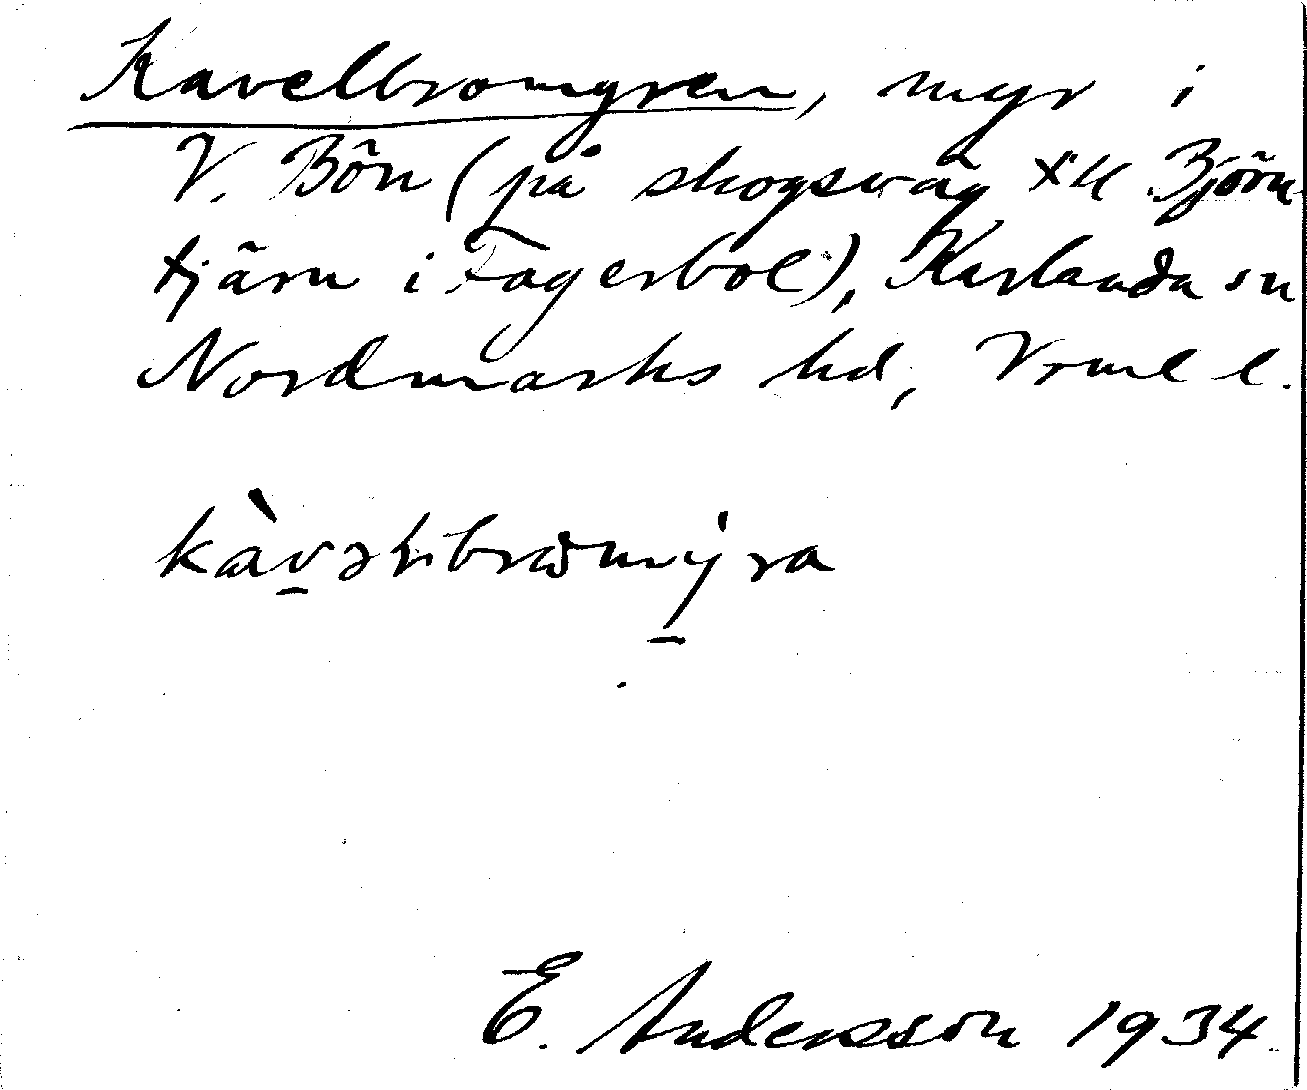 Kavelbromyren, myr i
V. Bön (på skogsväg till Björn-
tjärn i Fagerbol), Karlanda sn
Nordmarks hd, Vrml l.
kàvəlibromýra
E. Andersson 1934